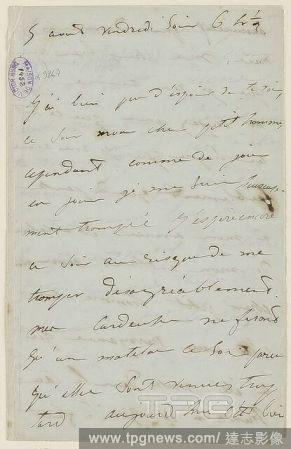 5 août vendredi soir 6 h
J'ai bien peu d'espoir de te voir
ce soir mon cher petit homme
cependant comme de jour
en jour je me suis
ment trompée j'espère encore
ce soir au risque de me
tromper désagréablement.
mes cardeuses ne feront
qu'un matelas ce soir parce
qu'elles sont venues trop
tard aujourd'hui
TPG
www.tpgnews.com / 達志影像